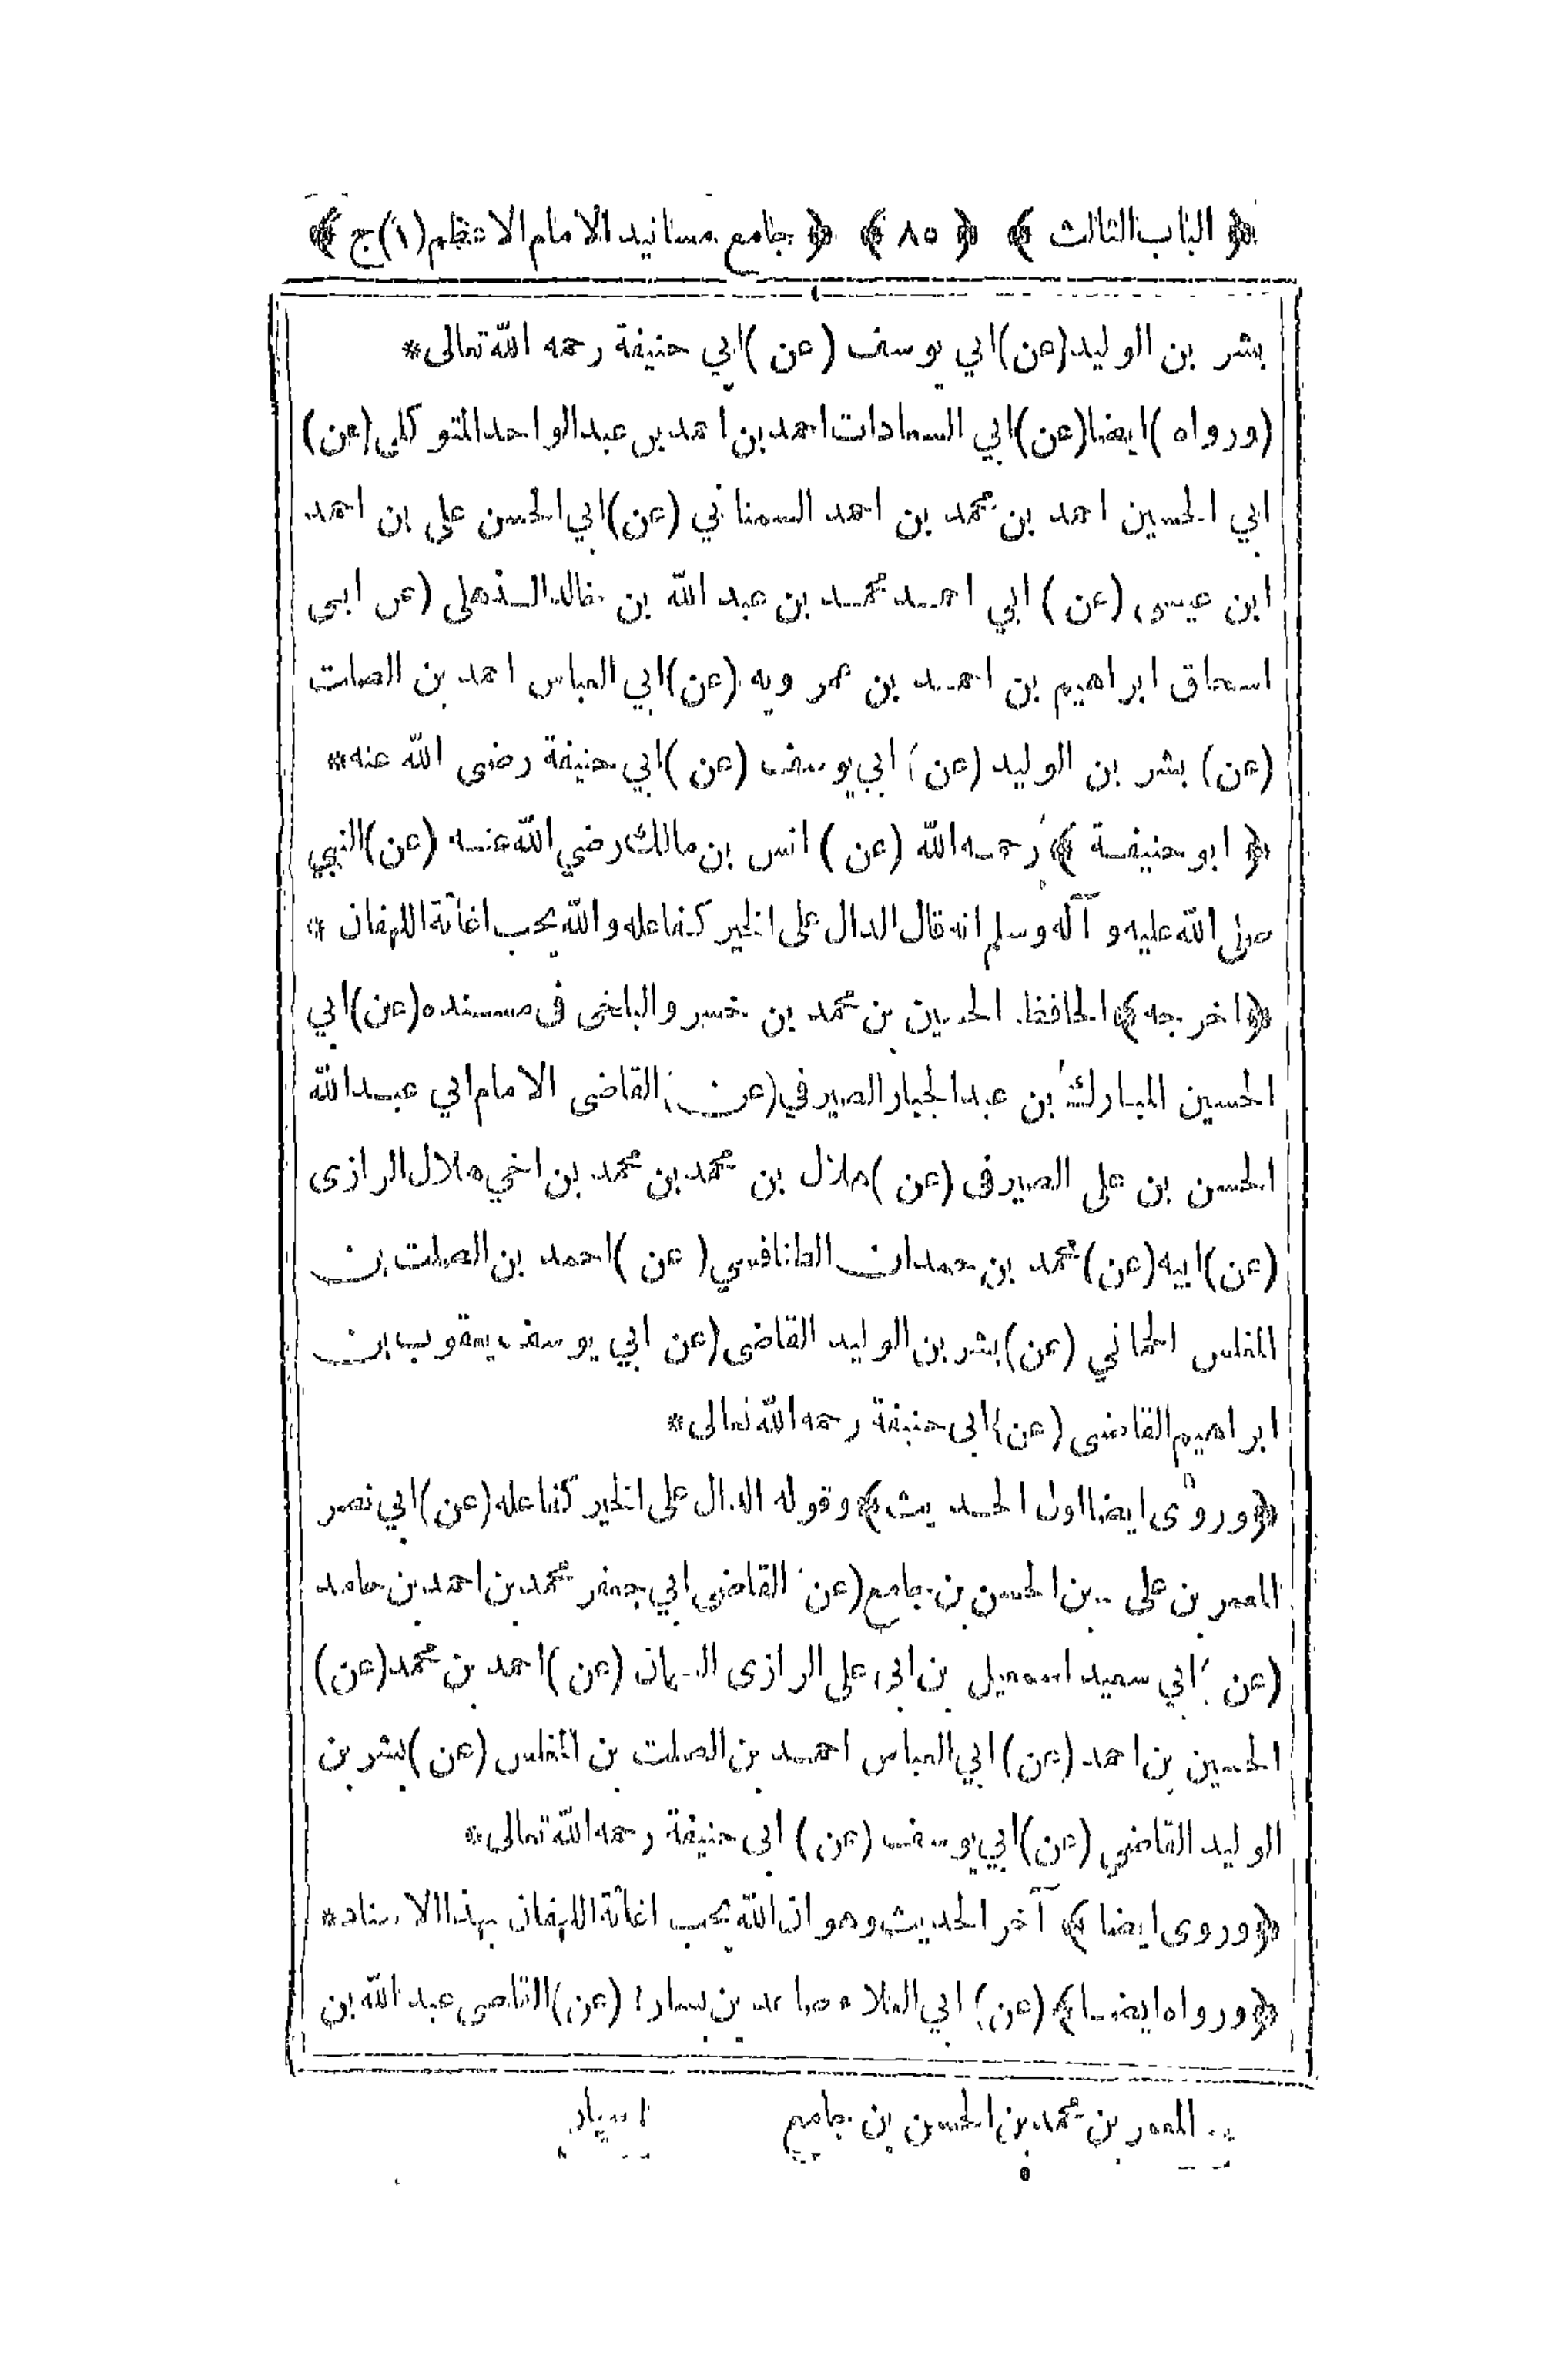 ﴿ الباب الثالث ﴾ ﴿ ٨٥ ﴾ ﴿ جامع مسانيد الامام الاعظم (١) ج ﴾
بشر بن الوليد (عن) ابي يوسف (عن) ابي حنيفة رحمه الله تعالى*
(ورواه) ايضا (عن) ابي السعادات احمد بن احمد بن عبد الواحد المتوكلى (عن)
ابي الحسين احمد بن محمد بن احمد السمناني (عن) ابي الحسن على بن احمد
ابن عيسى (عن) ابي احمد محمد بن عبد الله بن خالد الذهلى (عن ابى
اسحاق ابراهيم بن احمد بن عمرويه (عن) ابي العباس احمد بن الصلت
(عن) بشر بن الوليد (عن) ابي يوسف (عن) ابي حنيفة رضى الله عنه*
﴿ ابو حنيفة ﴾ رحمه الله (عن) انس بن مالك رضي الله عنه (عن) النبي
صلى الله عليه و آله وسلم انه قال الدال على الخير كفاعله والله يحب اغاثة اللهفان *
﴿اخرجه﴾ الحافظ الحسين بن محمد بن خسرو البلخى فى مسنده (عن) ابي
الحسين المبارك بن عبد الجبار الصيرفي (عن) القاضى الامام ابي عبد الله
الحسن بن على الصيرفى (عن) هلال بن محمد بن محمد بن اخي هلال الرازى
(عن) ابيه (عن) محمد بن حمدان الطنافسي (عن) احمد بن الصلت بن
المغلس الحمانى (عن) بشر بن الوليد القاضى (عن ابي يوسف يعقوب بن
ابراهيم القاضى (عن) ابى حنيفة رحمه الله تعالى*
﴿وروى ايضا اول الحديث﴾ وقوله الدال على الخير كفاعله (عن) ابي نصر
المعمر بن على .. بن الحسن بن جامع (عن القاضى ابي جعفر محمد بن احمد بن حامد
(عن) ابي سعيد اسمعيل بن ابى على الرازى السمان (عن) احمد بن محمد (عن)
الحسين بن احمد (عن) ابي العباس احمد بن الصلت بن المغلس (عن) بشر بن
الوليد القاضي (عن) ابي يوسف (عن) ابى حنيفة رحمه الله تعالى*
﴿وروى ايضا﴾ آخر الحديث وهو ان الله يحب اغاثة اللهفان بهذا الاسناد*
﴿ورواه ايضا﴾ (عن) ابي العلاء صاعد بن سيار١ (عن) القاضى عبد الله بن
.. المعمر بن محمد بن الحسن بن جامع ١ سيار